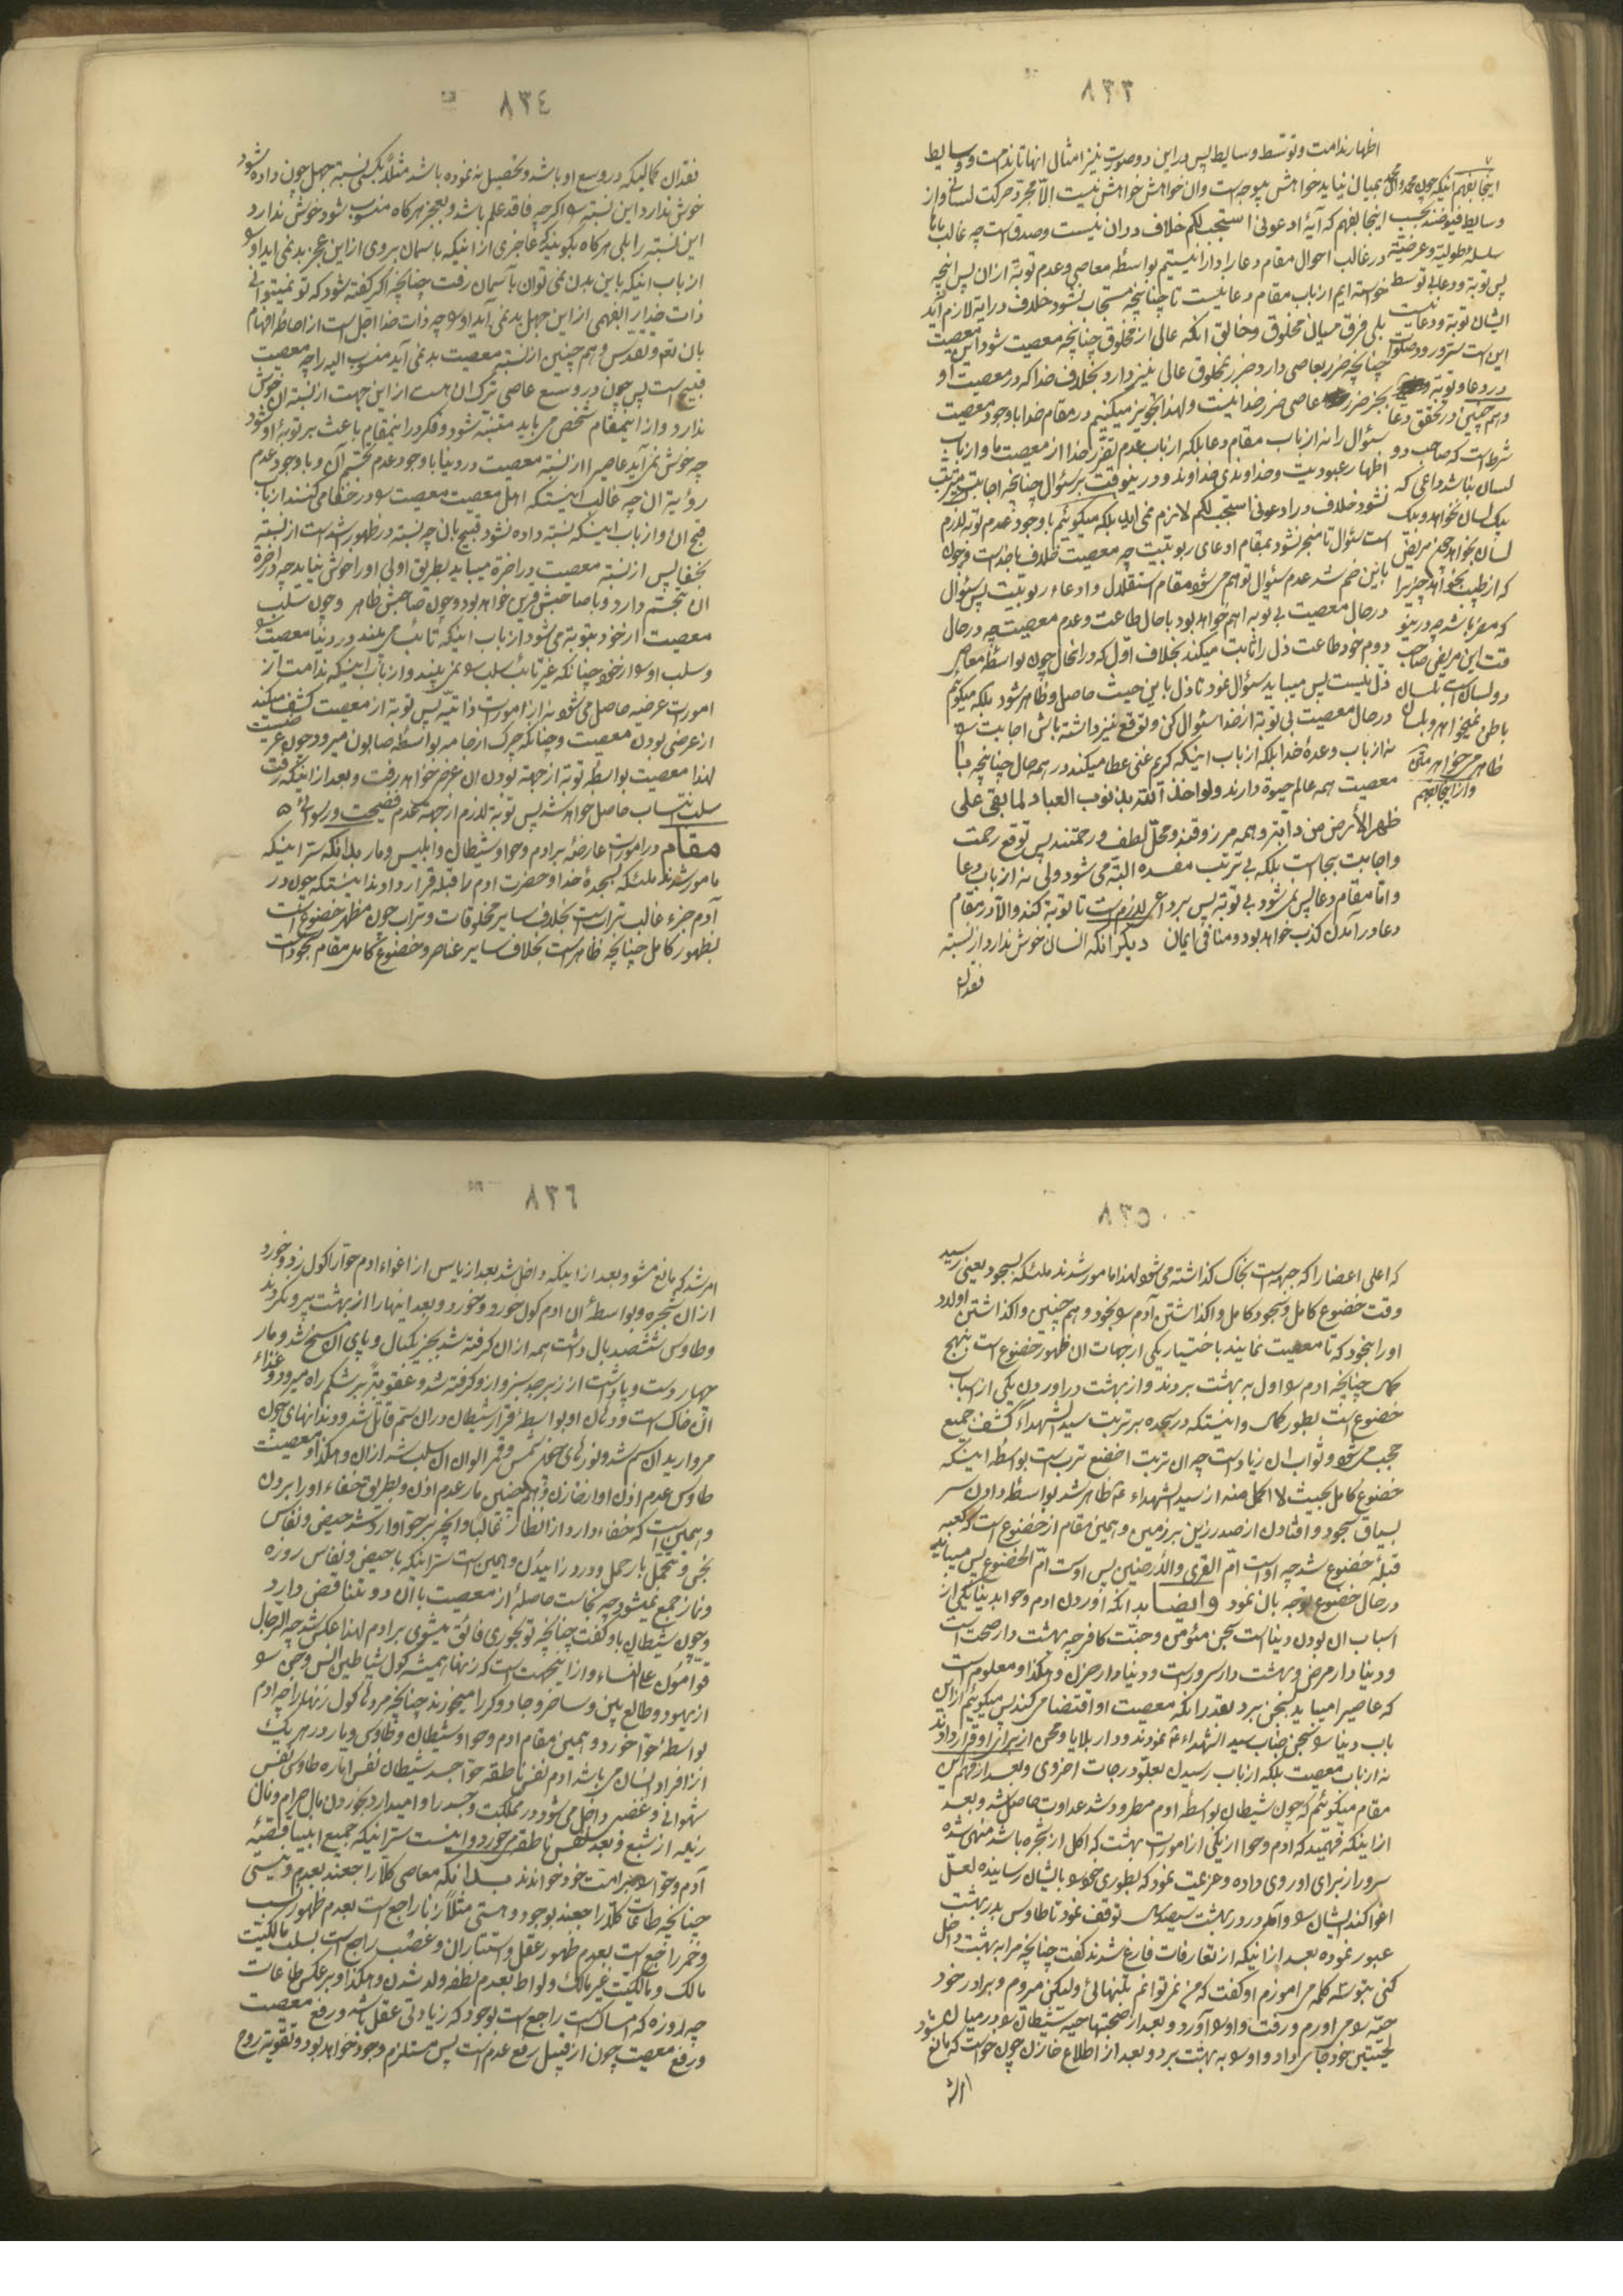 ٨٣٣
اظهار ندامت و توسط وسایط پس در این دو صورت نیز امثال انها تا ندامت و وسایط
اینجا بفهم اینکه چون محمد وال محمد بمیان نیاید خواهش بیوجه است وان خواهش خواهش نیست الّا مجرّد حرکت لسانی واز
وسایط فیوضند بحسب اینجا بفهم که آیهٔ ادعونی استجب لکم خلاف دران نیست وصدق است چه غالب ما
سلسله طولیة و عرضیة در غالب احوال مقام دعا را دارا نیستیم بواسطهٔ معاصی و عدم توبة از ان پس انچه
پس توبة و دعا بی توسط خواسته ایم از باب مقام دعا نیست تا چنانچه مستجاب نشود خلاف در ایة لازم آید
ایشان توبة و دعا نیست بلی فرق میان مخلوق و خالق انکه عالی از مخلوق چنانچه معصیت شود این معصیت
این است سرّ ورود صلوات چنانچه ضرر بعاصی دارد ضرر بمخلوق عالی نیز دارد بخلاف خدا که در معصیت او
در دعا و توبة بجز ضرر عاصی ضرر خدا نیست و لهذا تجویز میکنیم در مقام خدا با وجود معصیت
و هم چنین در تحقق دعا سؤال را نه از باب مقام دعا بلکه از باب عدم تضرّر خدا از معصیت ما و از باب
شرط است که صاحب دو اظهار عبودیت و خداوندی خداوند و در ینوقت بر سئوال چنانچه اجابت مترتب
لسان نباشد داعی که نشود خلاف در ادعونی استجب لکم لازم نمی اید بلکه میگوئیم با وجود عدم توبه لازم
یک لسان نخواهد و یک است سئوال تا منجر نشود بمقام ادعای ربوبیّت چه معصیت خلاف با خداست و چون
لسان بخواهد چون مریض باین ضم شد عدم سئوال توهم می شود مقام استقلال و ادعاء ربوبیّت پس سئوال
که از طبیب بخواهد چیزیرا در حال معصیت بی توبه اهم خواهد بود با حال طاعت و عدم معصیت چه در حال
که مضر باشد چه در ینو دوم خود طاعت ذل را ثابت میکند بخلاف اوّل که در انحال چون بواسطهٔ معاصی
قت این مریض صاحب ذل نیست پس میباید سئوال نمود تا ذل باین حیث حاصل و ظاهر شود بلکه میگوئیم
دو لسان است بلسان در حال معصیت بی توبة از خدا سئوال کن و توقع نیز داشته باش اجابت را
باطن نمیخواهد و بلسان نه از باب وعدهٔ خدا بلکه از باب اینکه کریم غنی عطا میکند در همه حال چنانچه با
ظاهر میخواهد معصیت همه عالم حیوة دارند ولو اخذ الله بذنوب العباد لما بقی علی
و از اینجا بفهم
ظهر الأرض من دابة و همه مرزوقند و محلّ لطف و رحمتند پس توقع رحمت
و اجابت بجا است بلکه بی ترتب مفسده البتّه می شود ولی نه از باب دعا
و امّا مقام دعا پس نمی شود بی توبة پس بر داعی لازم است تا توبة کند و الّا در مقام
دعا در آمدن کذب خواهد بود و منافی ایمان دیگر انکه انسان خوش ندارد از نسبته
فقدان
٨٣٤
فقدان کمالیکه در وسع او باشد و تحصیل نه نموده باشد مثلاً بکسی نسبة جهل چون داده شود
خوش ندارد این نسبته را اگرچه فاقد علم باشد و بعجز هرگاه منسوب شود خوش ندارد
این نسبته را بلی هرگاه بگویند که عاجزی از اینکه باسمان بروی از این عجز بد نمی اید او را
از باب اینکه باین بدن نمی توان بآسمان رفت چنانچه اگر گفته شود که تو نمیتوانی
ذات خدا را بفهمی از این جهل بد نمی آید او را چه ذات خدا اجل است از احاطهٔ افهام
بان تعالی و تقدس و هم چنین از نسبته معصیت بد نمی آید منسوب الیه را چه معصیت
قبیح است پس چون در وسع عاصی ترک ان است از این جهت از نسبته ان خوش
ندارد و از اینمقام شخص می باید متنبّه شود و فکر در اینمقام باعث بر توبهٔ او شود
چه خوش نمی آید عاصی را از نسبته معصیت در دنیا با وجود عدم تجسّم آن و با وجود عدم
رؤیة ان چه غالب اینستکه اهل معصیت معصیت را در خفا می کنند از باب
قبح ان و از باب اینکه نسبته داده نشود قبیح بان چه نسبته در ظهور اشد است از نسبته
بخفا پس از نسبته معصیت در اخرة میباید بطریق اولی او را خوش نیاید چه در اخرة
ان تجسّم دارد و با صاحبش قرین خواهد بود و چون صاحبش ظاهر و چون سلب
معصیت از خود بتوبة می شود از باب اینکه تائب می بیند در دنیا معصیت را
و سلب او را از خود چنانکه غیر تائب سلب را نمی بیند و از باب اینکه ندامت از
امورات عرضیه حاصل می شود نه از امورات ذاتیّه پس توبة از معصیت کشف میکند
از عرضی بودن معصیت و چنانکه چرک از جامه بواسطهٔ صابون میرود چون عرضیست
لهذا معصیت بواسطهٔ توبة از جهة بودن ان عرض خواهد رفت و بعد از اینکه رفت
سلب انتساب حاصل خواهد شد پس توبة لازم از جهة عدم فضیحت و رسوائی
مقام در امورات عارضهٔ بر ادم و حوا و شیطان و ابلیس و مار بدانکه سرّ اینکه
مامور شدند ملئکه بسجدهٔ خدا و حضرت ادم را قبله قرار دادند اینستکه چون در
آدم جزء غالب تراب است بخلاف سایر مخلوقات و تراب چون مظهر خضوع است
بظهور کامل چنانچه ظاهر است بخلاف سایر عناصر و خضوع کامل مقام سجود است
٨٣٥
که اعلی اعضا را که جبهه است بخاک گذاشته می شود لهذا مامور شدند ملئکه بسجود یعنی رسید
وقت خضوع کامل و سجود کامل و اگذاشتن آدم را بخود و هم چنین واگذاشتن اولاد
او را بخود که تا معصیت نمایند باختیار یکی از جهات ان ظهور خضوع است بنهج
کمال چنانچه ادم را اول به بهشت بردند و از بهشت در اوردن یکی از اسباب
خضوع است بطور کمال و اینستکه در سجده بر تربت سید الشهداء کشف جمیع
حجب می شود و ثواب ان زیاد است چه ان تربت اخضع ترب است بواسطه اینکه
خضوع کامل بحیث لا اکمل منه از سید الشهداء ع ظاهر شد بواسطهٔ دادن سر
بسیاق سجود و افتادن از صدر زین بر زمین و همین مقام از خضوع است که کعبه
قبلهٔ خضوع شد چه او است امّ القری و الأرضین پس اوست امّ الخضوع پس میباید
در حال خضوع توجه بان نمود و ایضا بدانکه اوردن ادم و حوا بدنیا یکی از
اسباب ان بودن دنیا است سجن مئومن و جنّت کافر چه بهشت دار صحت است
و دنیا دار مرض و بهشت دار سرور است و دنیا دار حزن و هکذا و معلوم است
که عاصی را میباید بسجن برد بقدر انکه معصیت او اقتضا می کند پس میگوئیم از این
باب دنیا را سجن جناب سید الشهداء ع نمودند و دار بلایا و محن از برای او قرار دادند
نه از باب معصیت بلکه از باب رسیدن بعلوّ درجات اخروی و بعد از فهم این
مقام میگوئیم که چون شیطان بواسطهٔ ادم مطرود شد عداوت حاصل شد و بعد
از اینکه فهمید که ادم و حوا از یکی از امورات بهشت که اکل از شجره باشد منهی شده
سرور از برای او روی داده و عزیمت نمود که بطوری خود را بایشان رسانیده لعلّ
اغوا کند ایشان را و آمد در در بهشت سیصد سال توقف نمود تا طاوس بدر بهشت
عبور نموده بعد از اینکه از تعارفات فارغ شدند گفت چنانچه مرا به بهشت داخل
کنی بتو سه کلمه می اموزم او گفت که من نمی توانم بتنهائی ولیکن میروم و برادر خود
حیّه را می اورم و رفت و او را آورد و بعد از صحبتها حیّه شیطان را در میان
لحیتین خود جای داد و او را به بهشت برد و بعد از اطلاع خازن چون خواست که مانع شود
امر شد
٨٣٦
امر شد که مانع مشو و بعد از اینکه داخل شد بعد از یاس از اغواء ادم حوا را گول زد و خورد
از ان شجره و بواسطهٔ ان ادم گول خورد و خورد و بعد انها را از بهشت بیرون کردند
و طاوس ششصد بال داشت همه از ان گرفته شد بجز یکبال و پای ان مسخ شد و مار
چهار دست و پا داشت از زبرجد سبز از او گرفته شد و عقوبةً بر شکم راه میرود و غذاء
ان خاک است و دهان او بواسطهٔ قرار شیطان دران سمّ قاتل شد و دندانهای چون
مروارید ان سم شد و نورهای چون شمس و قمر الوان ان سلب شد از ان و هکذا و معصیت
طاوس عدم اذن او از خازن و هم چنین مار عدم اذن و بطریق خفاء او را بردن
و همین است که خفاء دارد از انظار غالباً و انچه بر حوا وارد شد حیض و نفاس
نجس و تحمّل بار حمل و درد زائیدن و همین است سرّ اینکه با حیض و نفاس روزه
و نماز جمع نمیشود چه نجاست حاصلهٔ از معصیت با ان دو تناقض دارد
و چون شیطان باو گفت چنانچه تو بخوری فائق میشوی بر ادم لهذا عکس شد چه الرجال
قوّامون علی النساء و از اینجهت است که زنها همیشه گول شیاطین انس و جن را
از یهود و طالع بین و ساحر و جادوگر را میخورند چنانچه مردها گول زنها را چه ادم
بواسطهٔ حوا خورد و همین مقام ادم و حوا و شیطان و طاوس و مار در هر یک
از افراد انسان می باشد ادم نفس ناطقه حوا جسد شیطان نفس اماره طاوس نفس
شهوانی و غضب و داخل می شود در مملکت و جسد را وامیدارد بخوردن مال حرام و مال
زیاد از شبع و بعد نفس ناطقه می خورد و اینست سرّ اینکه جمیع انبیا قضیّهٔ
آدم و حوا را بر امت خود خواندند بدانکه معاصی کلاً راجعند بعدم و نیستی
چنانچه طاعات کلاً راجعند بوجود و هستی مثلاً زنا راجع است بعدم ظهور نسب
و خمر راجع است بعدم ظهور عقل و استتار ان و غصب راجع است بسلب مالکیّت
مالک و مالکیّت غیر مالک و لواط بعدم نطفه ولد شدن و هکذا و بر عکس طاعات
چه روزه که امساک است راجع است بوجود که زیادتی عقل باشد و رفع معصیت
و رفع معصیت چون از قبیل رفع عدم است پس مستلزم وجود خواهد بود و تقویة روح